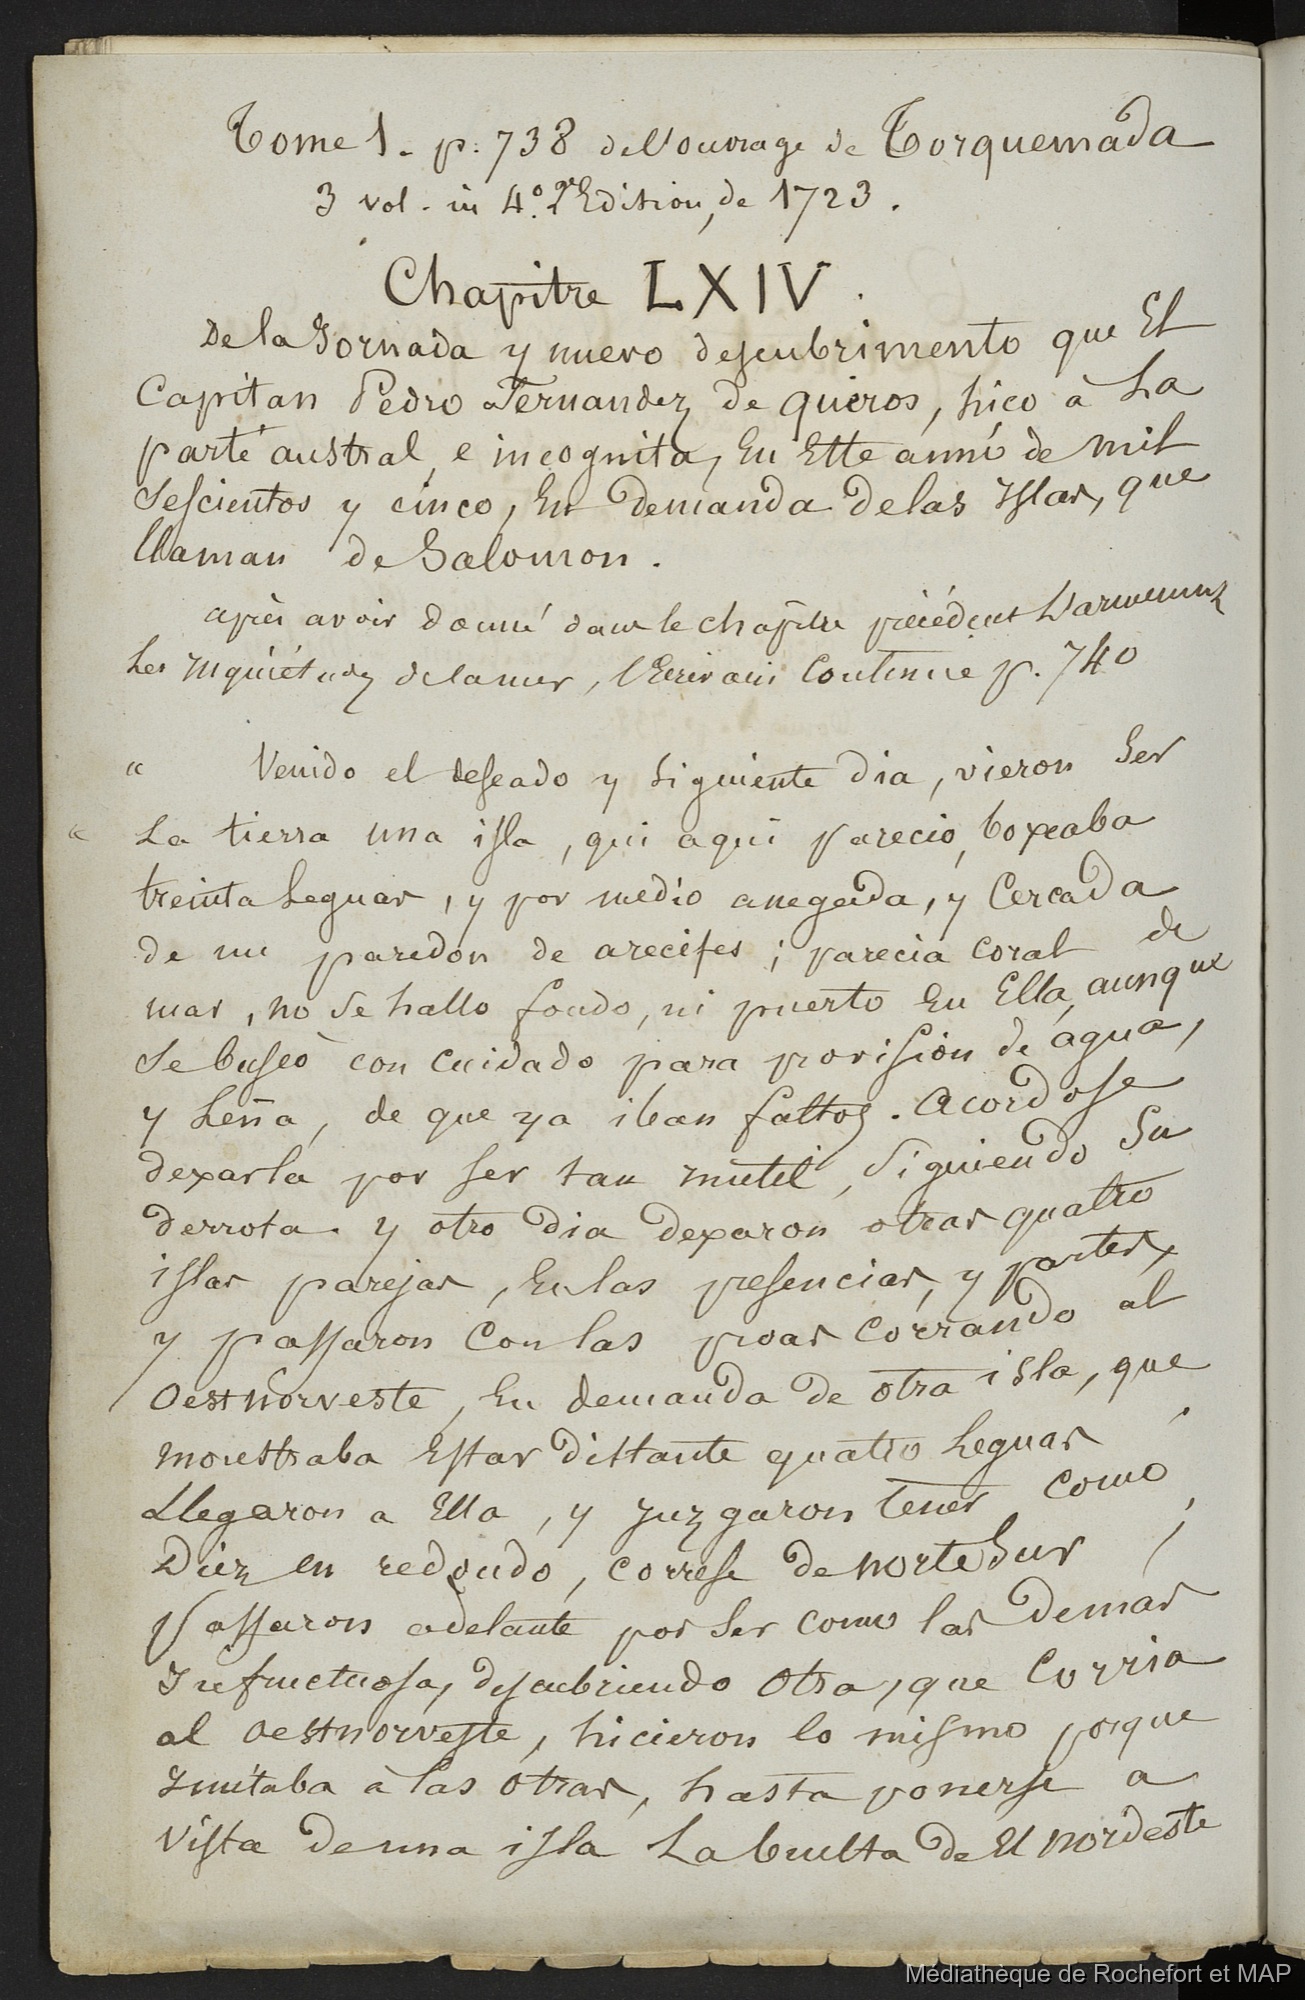 Tome 1. p. 738 de l'ouvrage de Torquemada
3 vol. in 4.º 2e Edition, de 1723.
Chapitre LXIV.
De la Jornada y nuevo descubrimento que El
Capitan Pedro Fernandez de quiros, hico à La
parte austral e incognita, En Este anno de mil
Sescientos y cinco, En Demanda de las Yslas, que
llaman de Salomon.
après avoir donné dans le chapitre précédent l'armement,
Les inquiétudes de la mer, l'Ecrivain Continue p. 740
" Venido el deseado y Siguiente Dia, vieron Ser
" La tierra una isla, qui aqui parecio, boxeaba
treinta Leguas, y por medio anegada, y Cercada
de un paredon de arecifes; parecia coral de
mar, no Se hallo fondo, ni puerto En Ella, aunque
Se buscò con Cuidado para provision de agua,
y Leña, de que ya iban faltos. Acordose
dexarla por ser tan inutil, Siguiendo Su
derrota. y otro Dia dexaron otras quatro
islas parejas, En las presencias, y partes,
y passaron Con las proas Corrando al
Oestnorveste, En demanda de otra isla, que
mouestraba Estar Distante quatro Leguas
Llegaron a Ella, y Juzgaron tener como
Diez en redondo, correse de norte Sur
Passaron adelante por Ser como las Demas
Infructuosa, descubriendo Otra, que Corria
al oestnorveste, hicieron lo mismo porque
Imitaba à las Otras, hasta ponerse a
Vista de una isla La buelta de El nordeste
Médiathèque de Rochefort et MAP